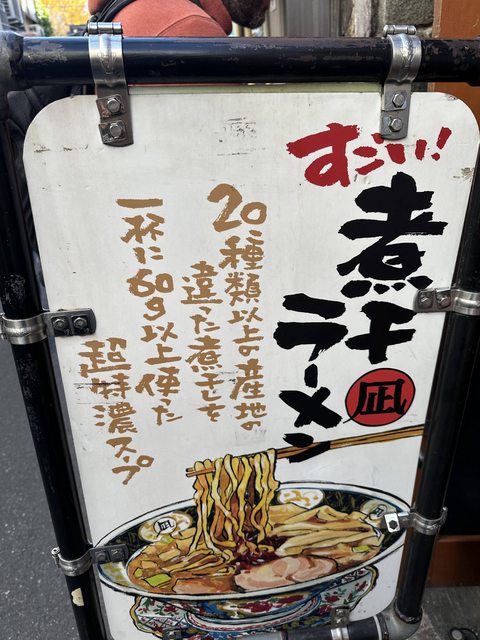 すごい!
煮干
ラーメン
凪
20種類以上の産地の
違った煮干しを
一杯に60g以上使った
超特濃スープ
凪
凪